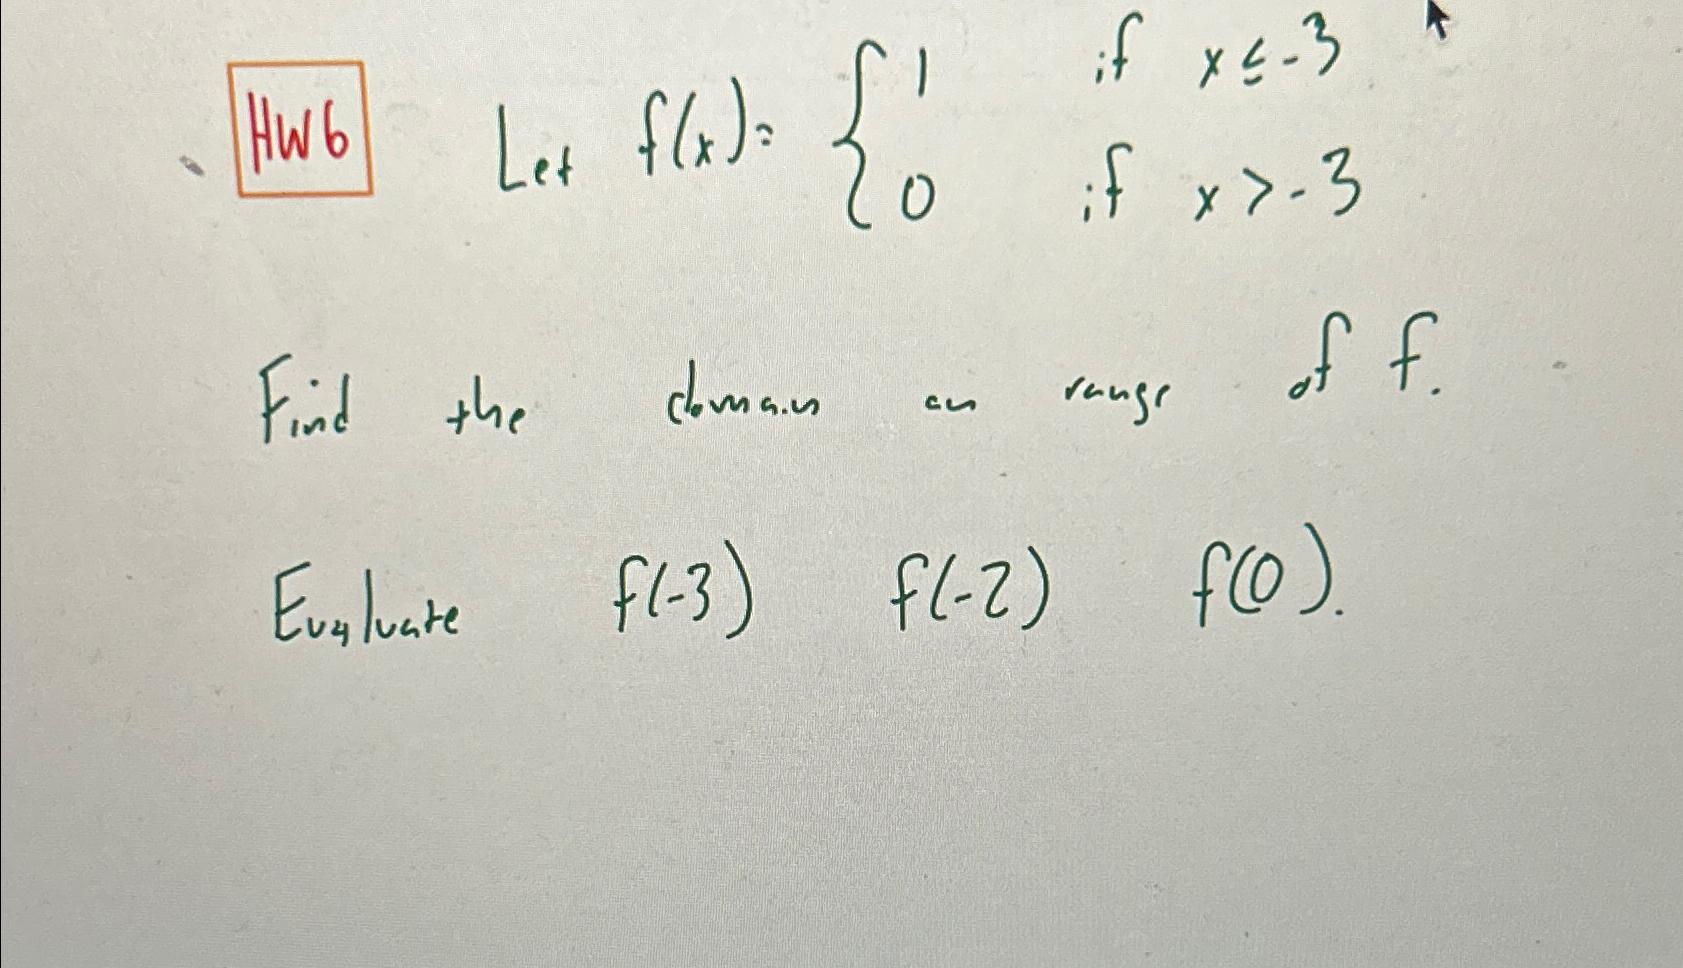 HW6 Let f(x)= { 1 if x ≤ -3
0 if x > -3
Find the domain an range of f.
Evaluate f(-3) f(-2) f(0).